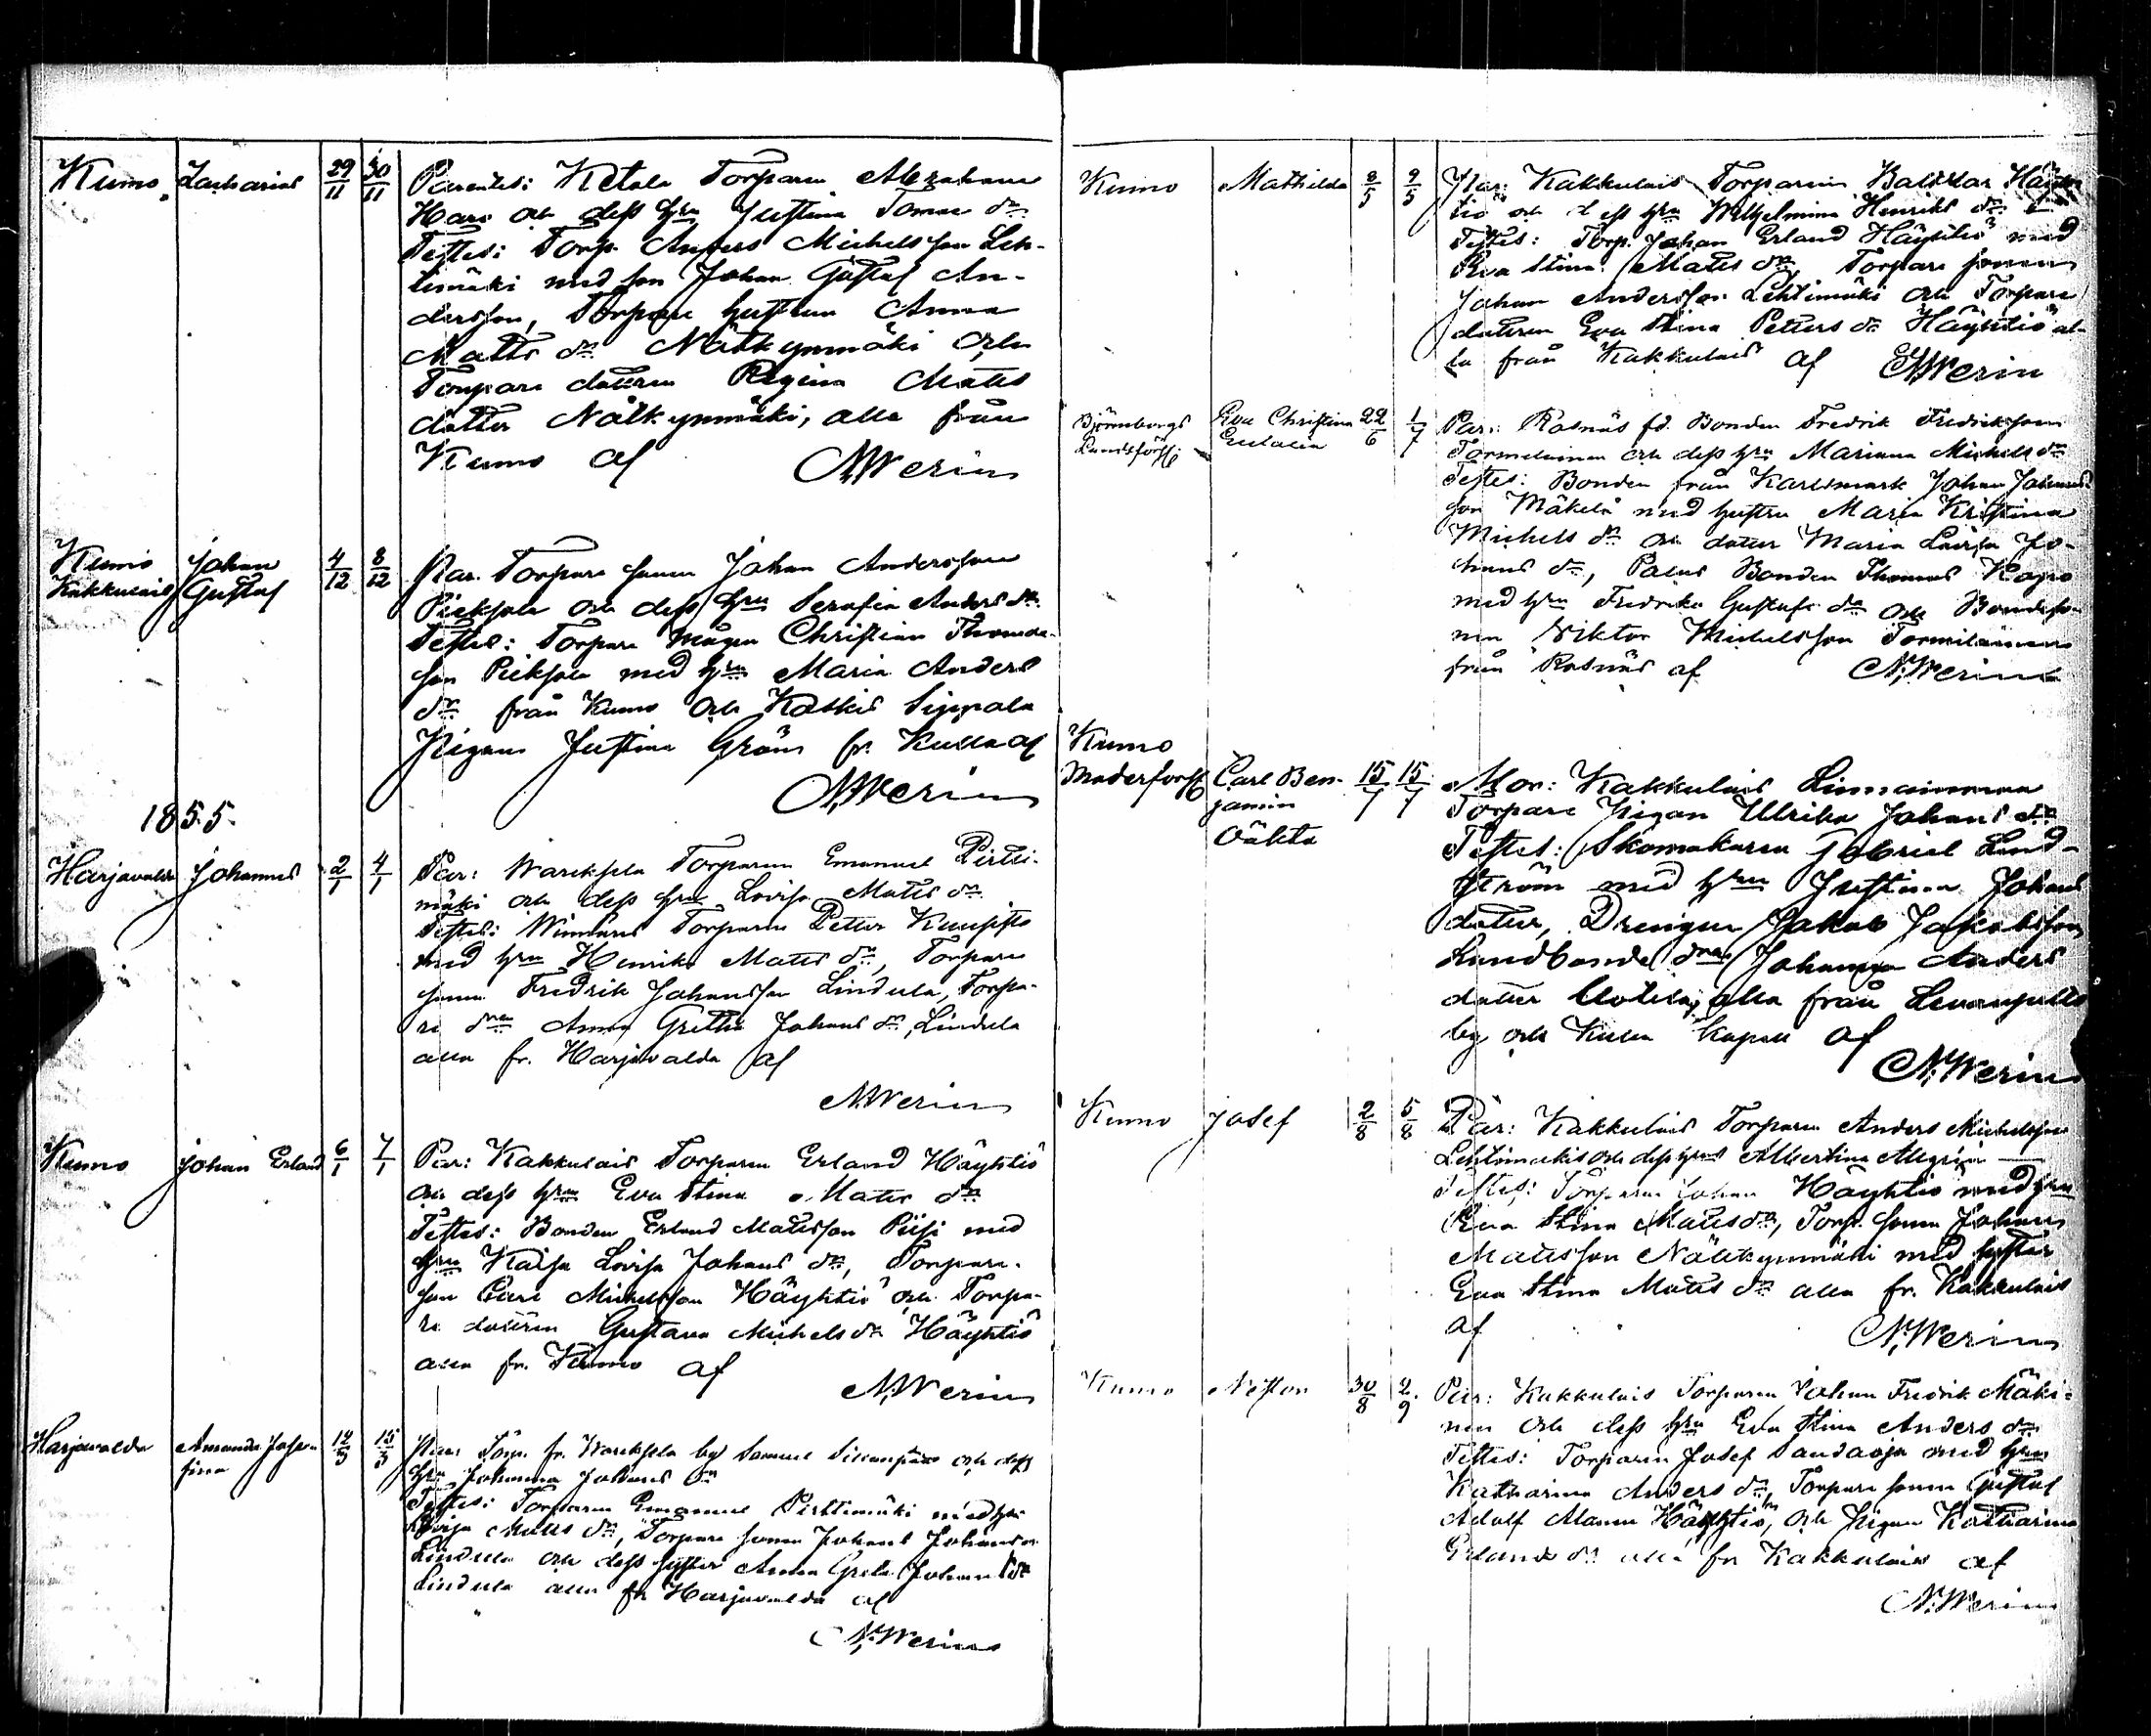 Kumo Zacharias 29/11 30/11 Parentes: Ketola Torparen Abraham
Hans och dess hru Justina Tomas dr
Testes: Torp. Anders Michelsson Leh-
timäki med son Johan Gustaf An-
dersson, Torpare hustrun Anna
Matts dr Nätkynmäki och
Torpare dottren Regina Matts
dotter Nätkynmäki, alla från
Kumo af N.Werin
Kumo Johan 4/12 8/12 Par. Torpare sonen Johan Andersson
Kakkulais Gustaf
Pieksola och dess hru Serafia Anders dr
Testes: Torpare mågen Christian Thomas-
son Pieksola med hru Maria Anders
dr från Kumo och Koskis Sippola
Pigan Justina Gröns fr. Kulla af
N.Werin
1855.
Harjavalda Johannes 2/1 4/1 Par: Warekselä Torparen Emanuel Pirtti-
mäki och dess hru Lovisa Matts dr
Testes: Torparen Petter
med hru Henrika Matts dr, Torpare
sonen Fredrik Johansson Lindula, Torpa-
re dren Anna Gretha Johans dr, Lindula
alla fr. Harjavalda af
N.Werin
Kumo Johan Erland 6/1 7/1 Par: Kakkulais Torparen Erland Häyhtiö
och dess hru Eva Stina Matts dr
Testes: Bonden Erland Mattsson Piisi med
hru Kaisa Lovisa Johans dr, Torpare-
son Carl Michelsson Häyhtiö och Torpa-
re dottren Gustava Michels dr Häyhtiö
alla fr. Kumo af
N.Werin
Harjavalda Amanda Jose- 12/3 15/3 Par: Torp. fr. Warekselä by Samuel och dess
fina
hru Johanna Johans dr
Testes: Torparen Emanuel Pirttimäki med hru
Lovisa Matts dr, Torpare sonen Johans Johansson
Lindula och dess syster Anna Greta Johans dr
Lindula alla fr Harjavalda af
N.Werin
Kumo Mathilda 8/5 9/5 Par: Kakkulais Torparen Baltzar Häyh-
tiö och dess hru Wilhelmina Henriks dr
Testes: Torp. Johan Erland Häyhtiö med
Eva Stina Matts dr Torpare sonen
Johan Andersson Lehtimäki och Torpare
dottren Eva Stina Petters dr Häyhtiö al-
la från Kakkulais af N.Werin
Björneborgs Eva Christina 22/6 1/7 Par: Rosnäs fd. Bonden Fredrik Fredriksson
Landsförs: Eulalia
Tormeläinen och dess hru Marianna Michels dr
Testes: Bonden från Karlsmark Johan Johans-
son Mäkelä med hustru Maria Kristina
Michels dr och dotter Maria Lovisa Jo-
hans dr, Palus Bonden Thomas
med hru Fredrika Gustafs dr och Bondeso-
nen Viktor Michelsson Tormeläinen
från Rosnäs af N.Werin
Kumo
Moderförs Carl Ben- 15/7 15/7 Mor: Kakkulais Linnainmaa
jamin
Oäkta
Torpare Pigan Ulrika Johans dr
Testes: Skomakaren Gabriel Lind-
ström med hru Justina Johans
dotter, Drengen Jakob Jakobsson,
Landbonde dren Johanna Anders
dotter Uotila, alla från Levanpelto
by och Kulla Kapell af
N.Werin
Kumo Josef 2/8 5/8 Par: Kakkulais Torparen Anders Michelsson
Lehtimäki och dess hru Albertina
Testes: Torparen Johan Häyhtiö med hru
Eva Stina Matts dr, Torp. sonen Johan
Mattsson Nätkynmäki med syster
Eva Stina Matts dr alla fr. Kakkulais
af N.Werin
Kumo Nestor 30/8 2/9 Par: Kakkulais Torparen Johan Fredrik Mäki-
nen och dess hru Eva Stina Anders dr
Testes: Torparen Josef Sandaoja med hru
Katharina Anders dr, Torpare sonen Gustaf
Adolf Häyhtiö, och Pigan Katharina
Erlands dr alla fr Kakkulais af
N.Werin